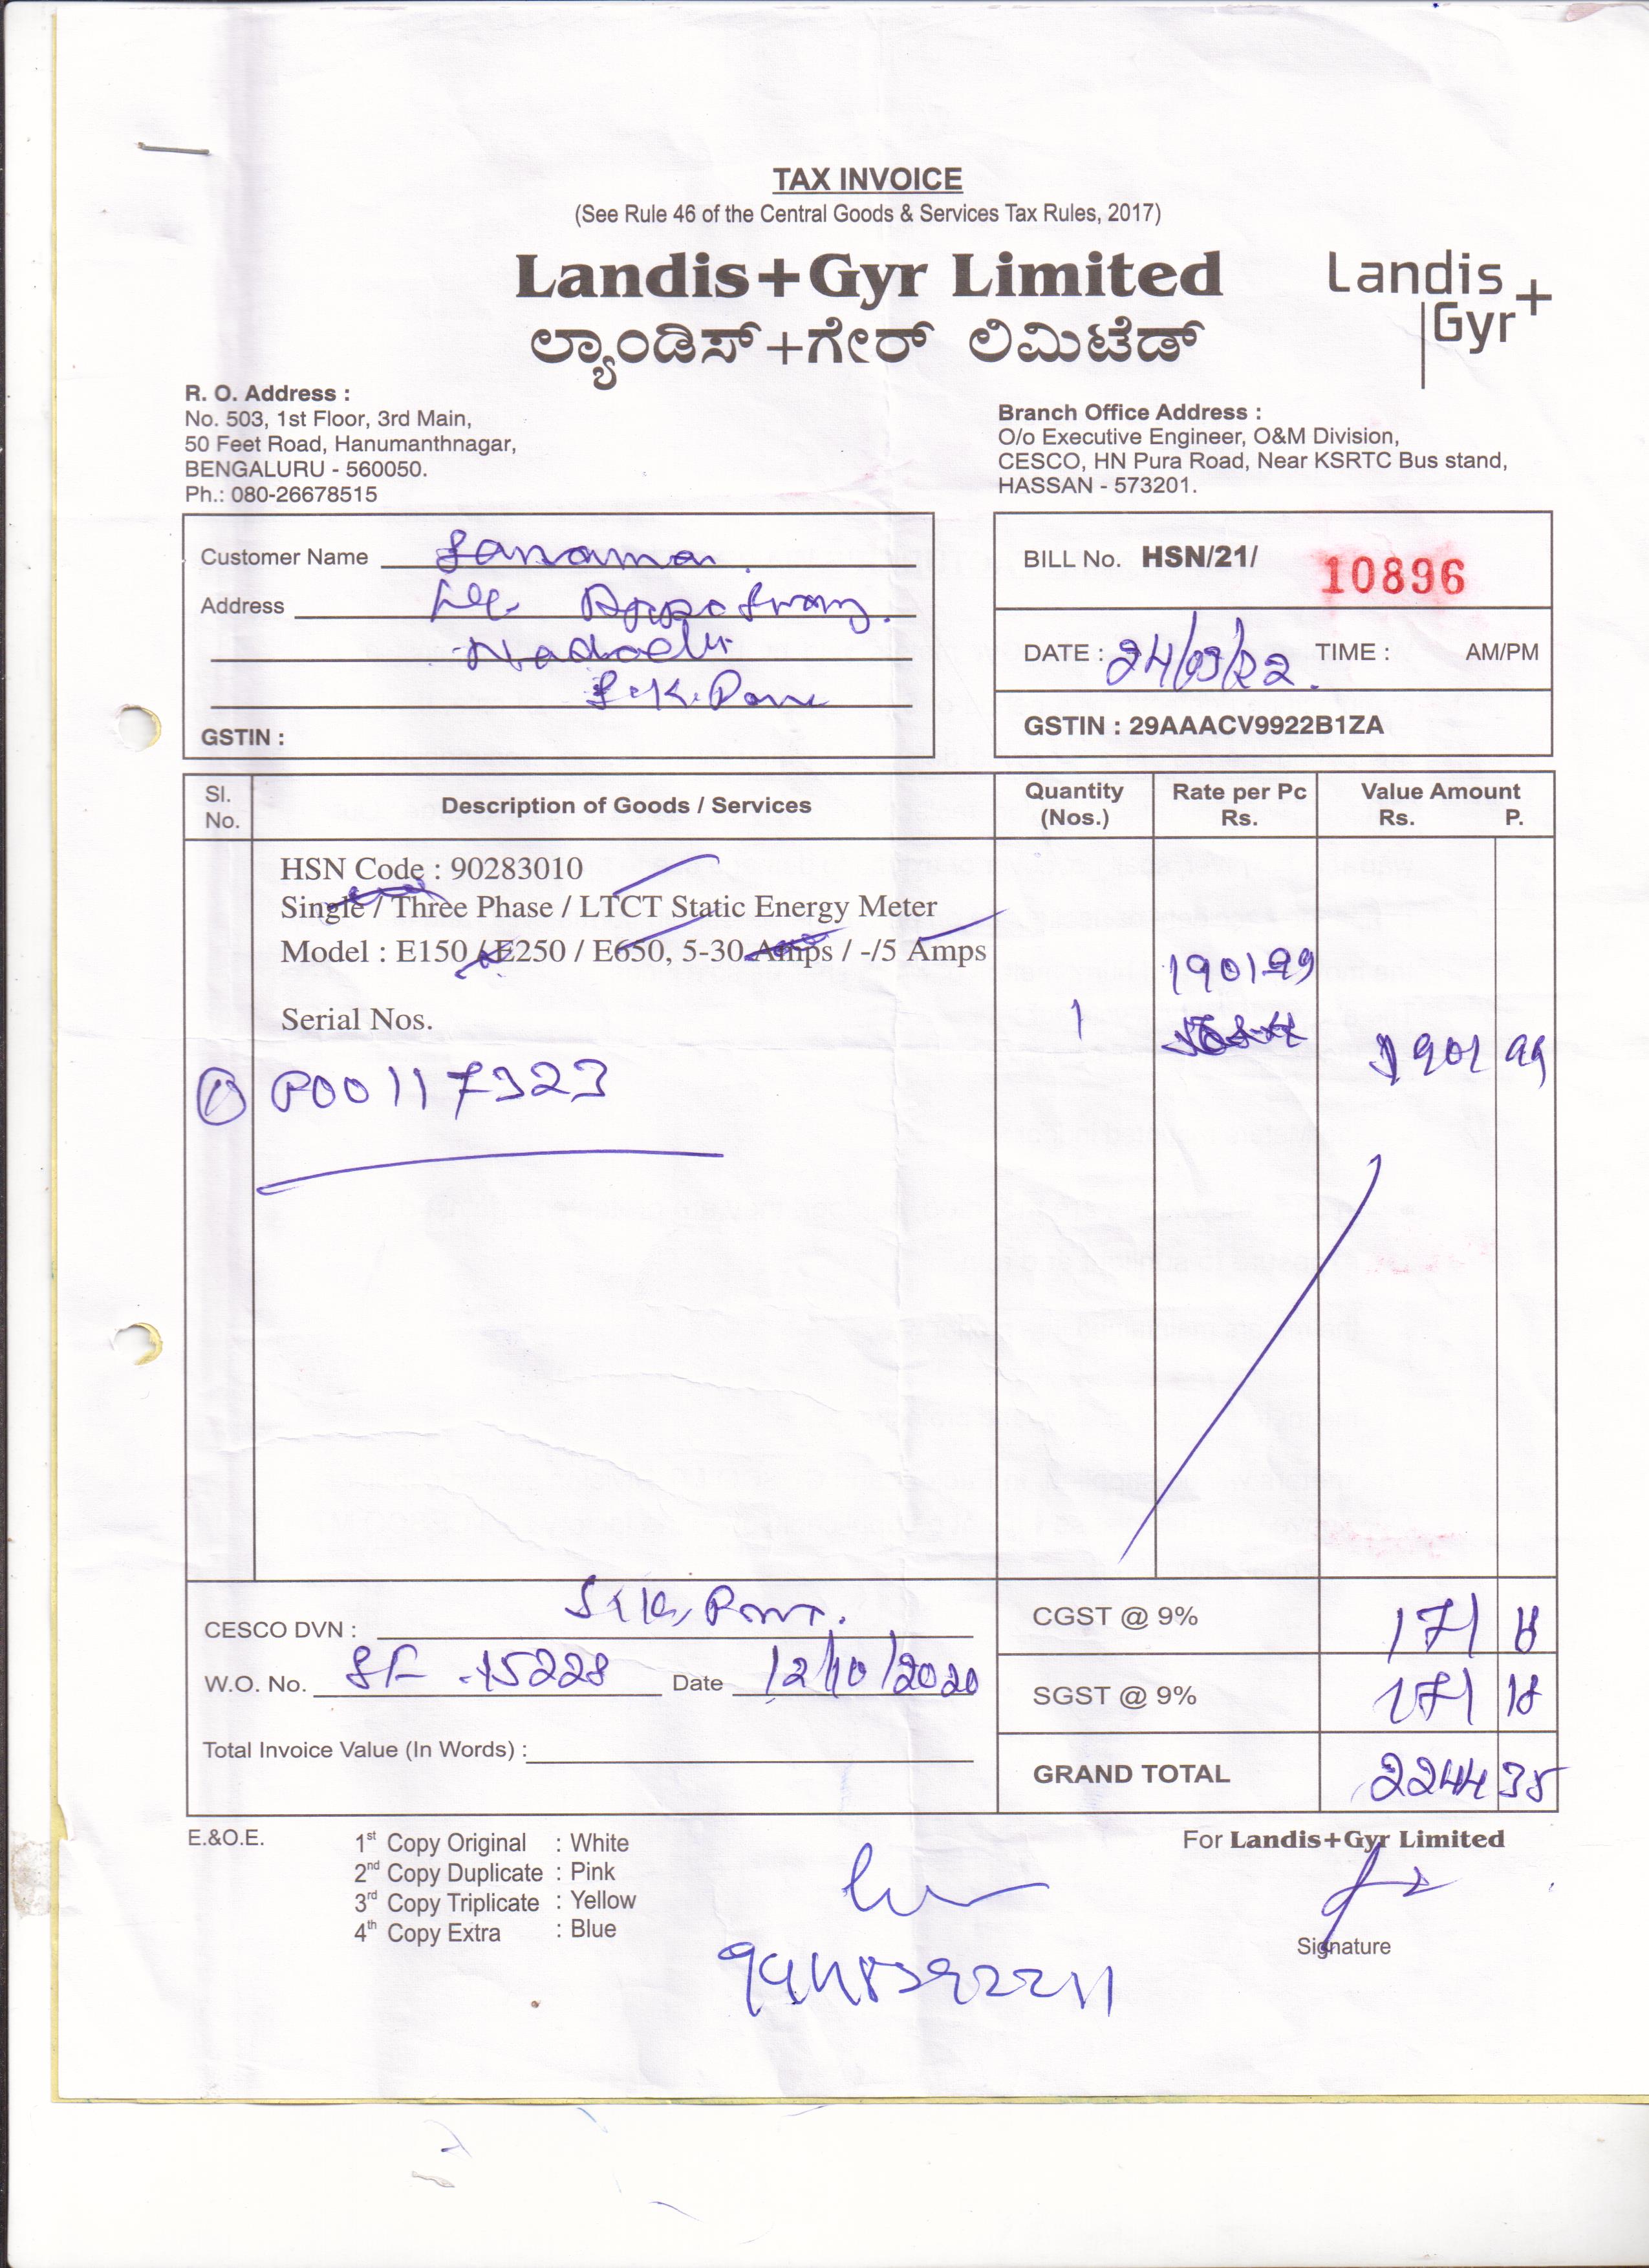 TAX INVOICE
(See Rule 46 of the Central Goods & Services Tax Rules, 2017)
Landis+Gyr Limited
ಲ್ಯಾಂಡಿಸ್+ಗೇರ್ ಲಿಮಿಟೆಡ್
Landis
Gyr+
R. O. Address :
No. 503, 1st Floor, 3rd Main,
50 Feet Road, Hanumanthnagar,
BENGALURU - 560050.
Ph.: 080-26678515
Branch Office Address :
O/o Executive Engineer, O&M Division,
CESCO, HN Pura Road, Near KSRTC Bus stand,
HASSAN - 573201.
Customer Name
Address
S.K. Pura
GSTIN :
BILL No. HSN/21/ 10896
DATE : 24/03/22. TIME : AM/PM
GSTIN : 29AAACV9922B1ZA
Sl. No. Description of Goods / Services Quantity (Nos.) Rate per Pc Rs. Value Amount Rs. P.
HSN Code : 90283010
Single / Three Phase / LTCT Static Energy Meter
Model : E150 / E250 / E650, 5-30 Amps / -/5 Amps
1901.99
Serial Nos. 1
1901 99
1 P00117323
CESCO DVN : S.K. Pura.
W.O. No. SF 15228 Date 12/10/2020
Total Invoice Value (In Words) :
CGST @ 9% 171 18
SGST @ 9% 171 18
GRAND TOTAL 2244 35
E.&O.E.
1st Copy Original : White
2nd Copy Duplicate : Pink
3rd Copy Triplicate : Yellow
4th Copy Extra : Blue
For Landis+Gyr Limited
Signature